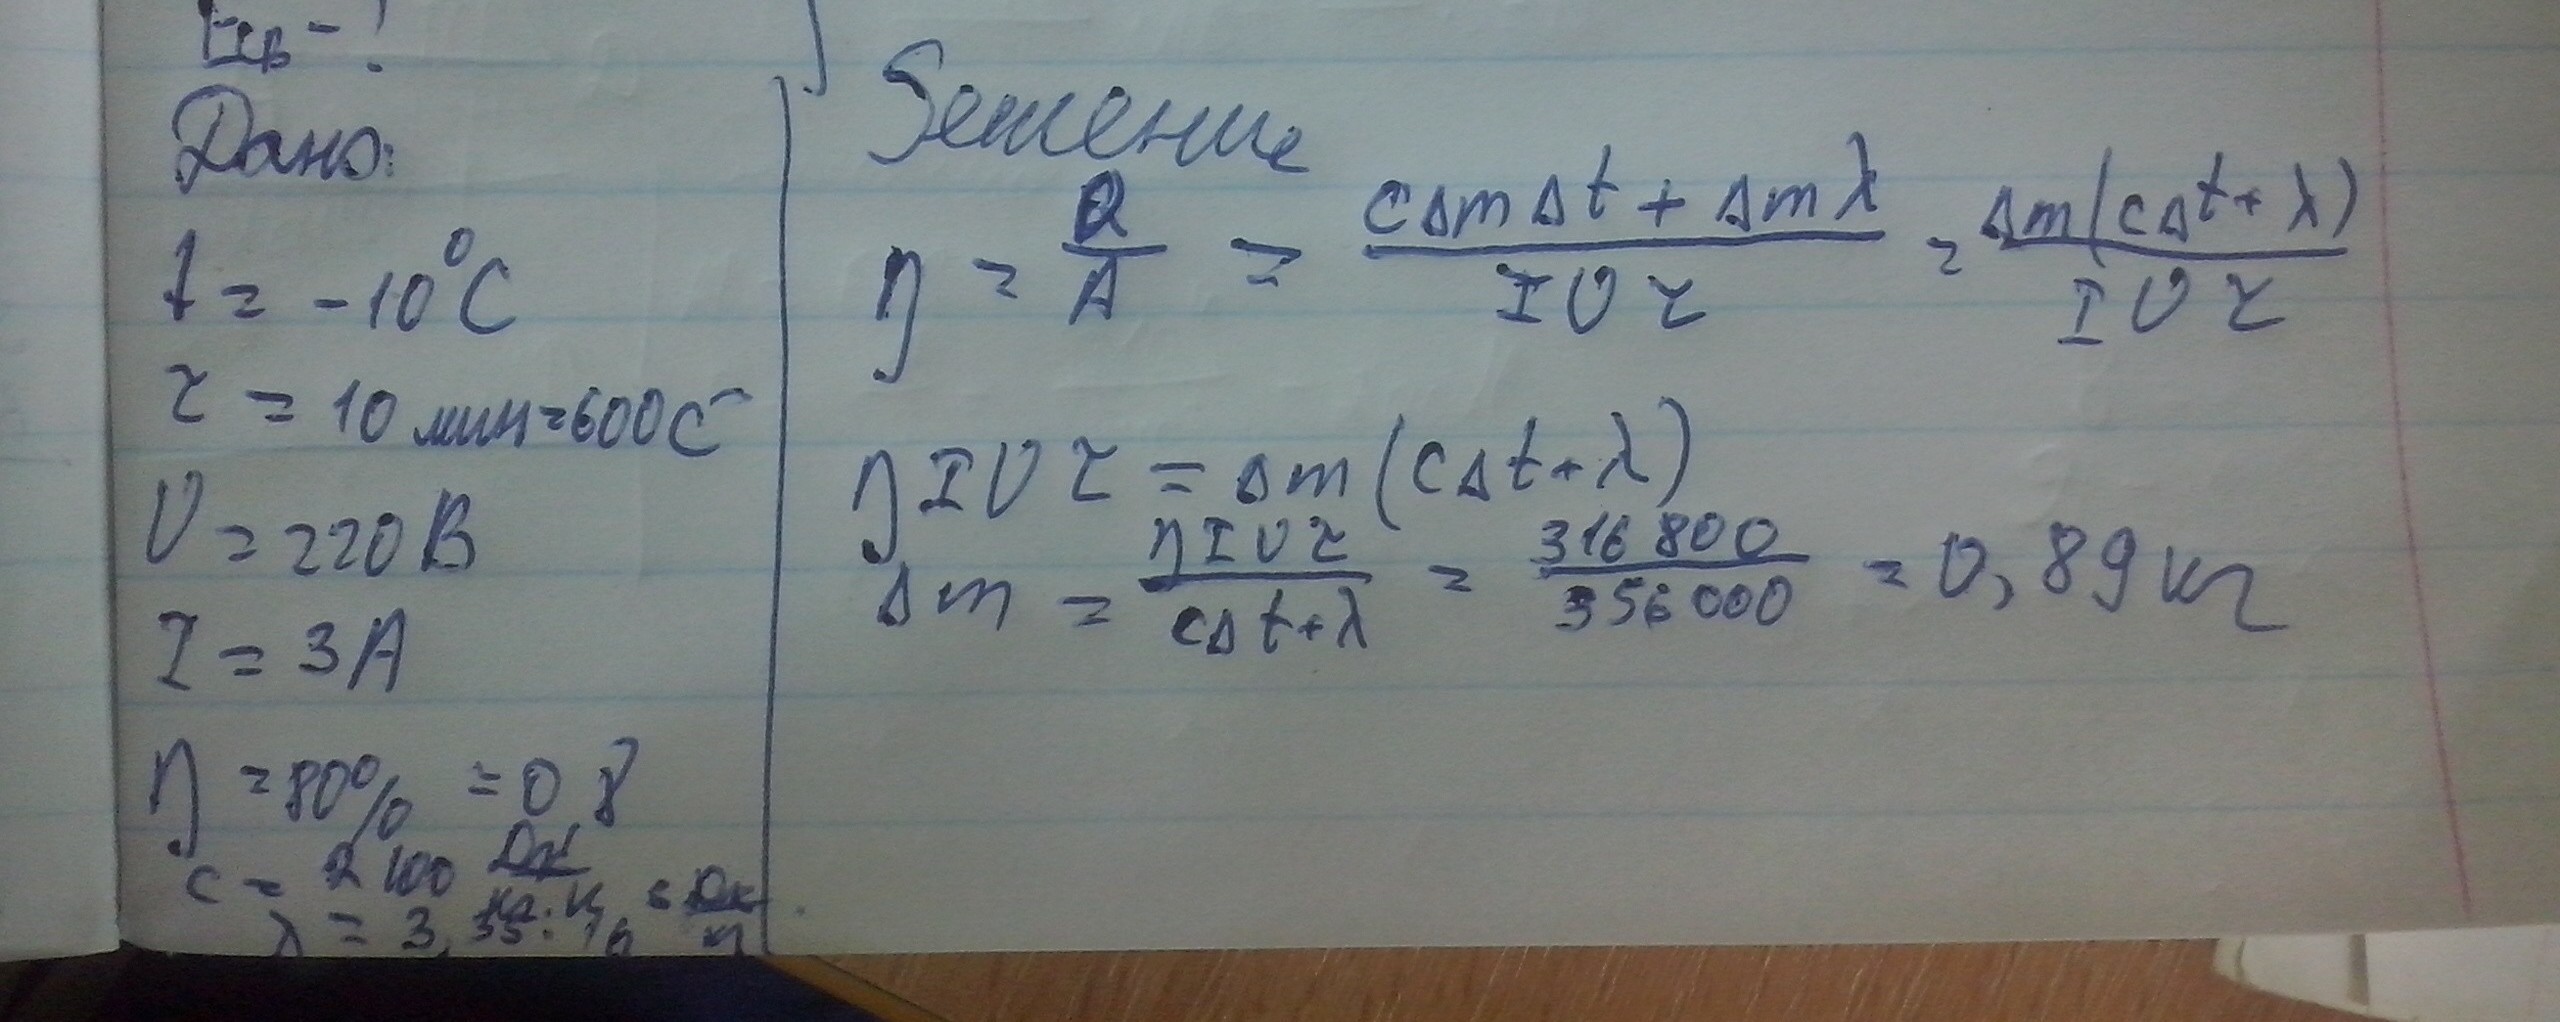 Дано:
t = -10°C
τ = 10 мин = 600 С
U = 220 В
I = 3 А
η = 80% = 0,8
c = 2100 Дж/кг·К
λ = 3,35·10^6 Дж/кг
Решение
η = Q/A = (cΔmΔt + Δmλ)/(IUτ) = Δm(cΔt + λ)/(IUτ)
ηIUτ = Δm(cΔt + λ)
Δm = ηIUτ/(cΔt + λ) = 316800/356000 = 0,89 кг